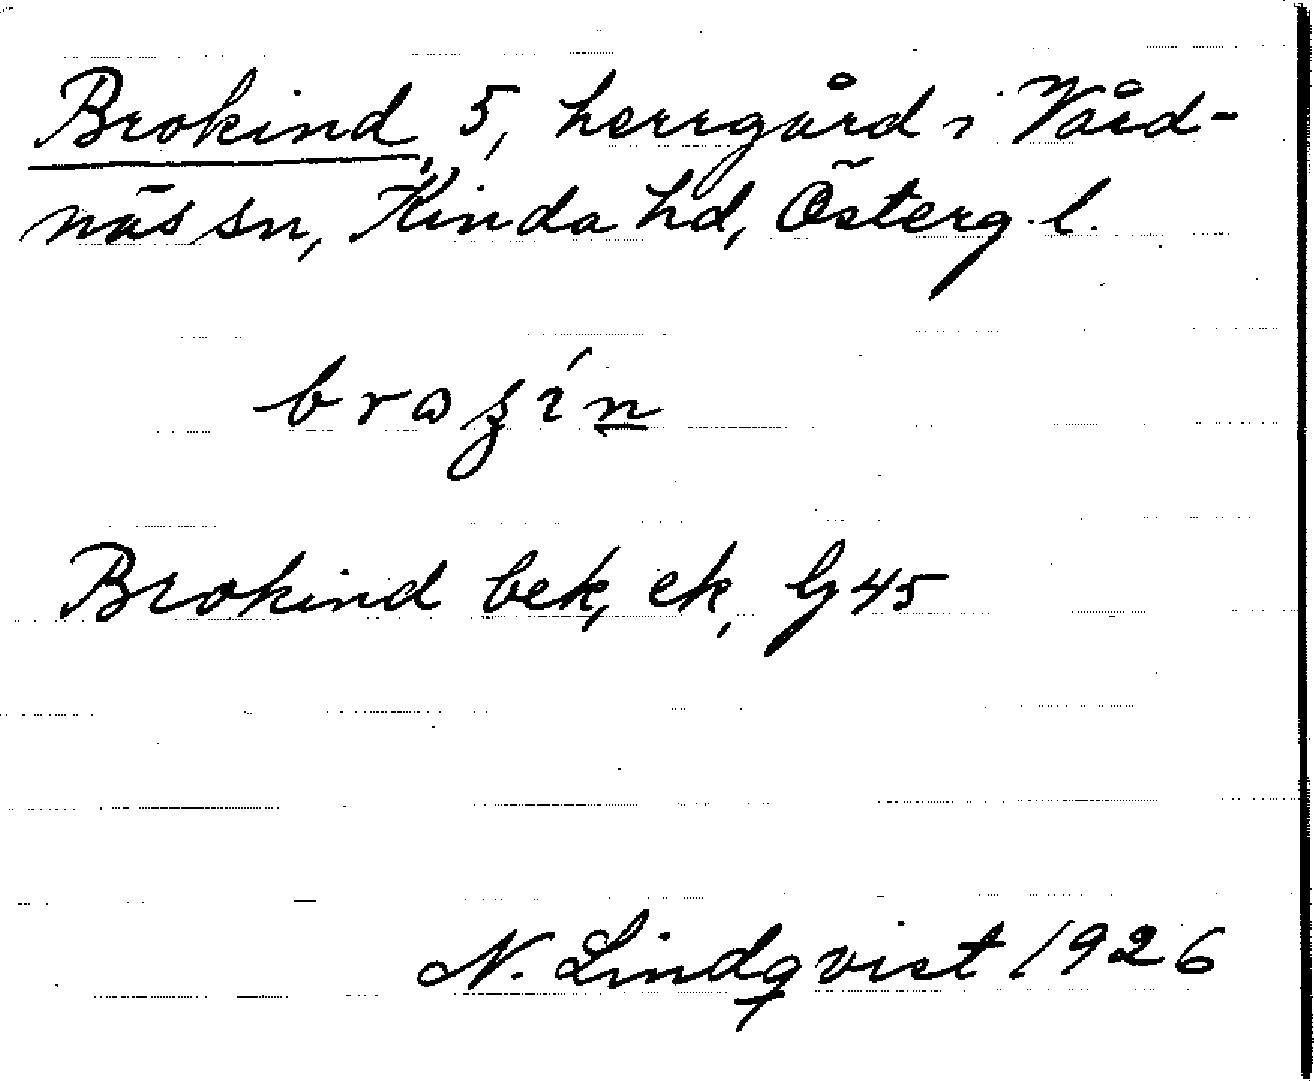 Brokind, 5, herrgård i Vård-
näs sn, Kinda hd, Österg. l.
Brokind bek, ek, Gg 45
N. Lindqvist 1926